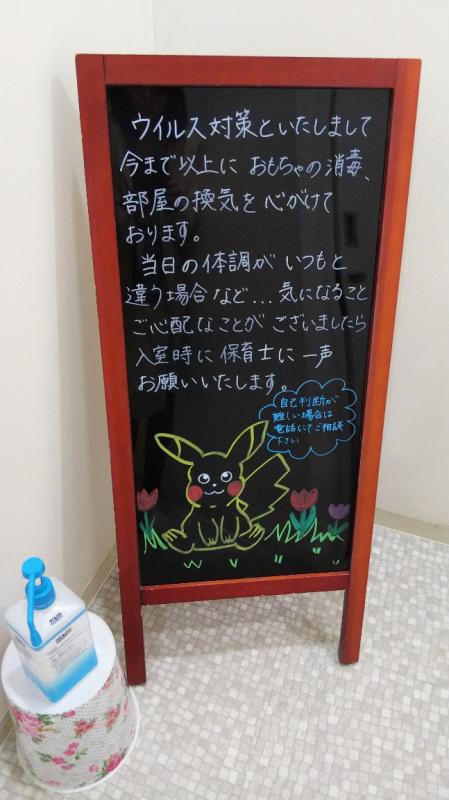 ウイルス対策といたしまして
今まで以上に おもちゃの消毒、
部屋の換気を心がけて
おります。
当日の体調が いつもと
違う場合など…気になること
ご心配なことが ございましたら
入室時に 保育士に 一声
お願いいたします。
自己判断が
難しい場合は
電話にてご相談
下さい